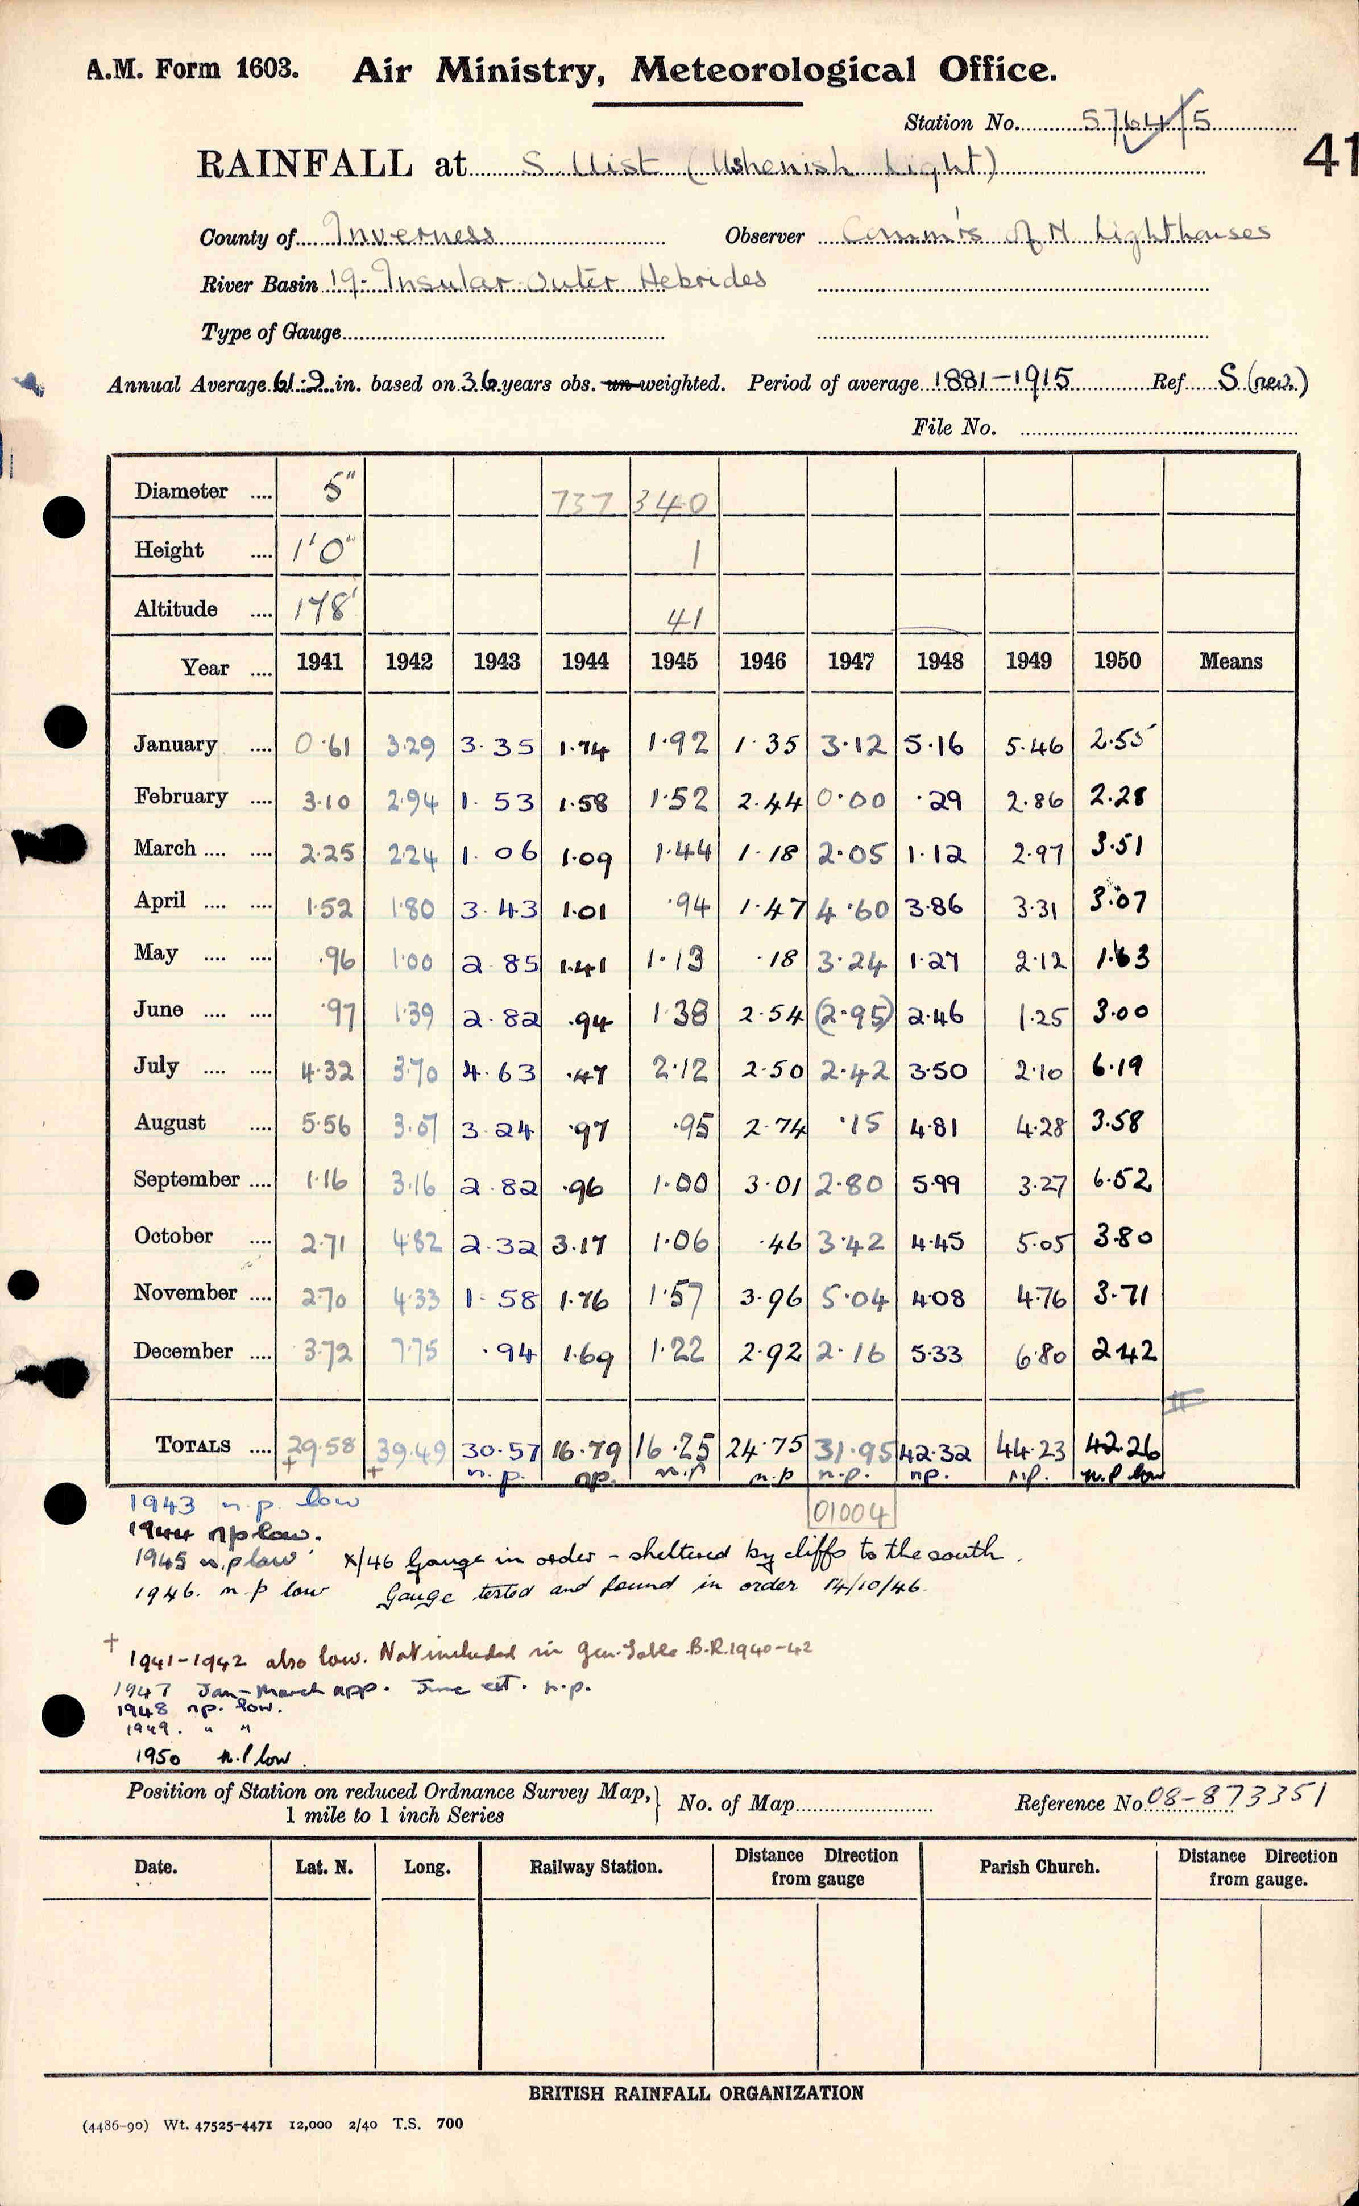 A.M. Form 1603. Air Ministry, Meteorological Office.
Station No. 5764/5
41
RAINFALL at S. Uist (Ushenish Light)
County of Inverness Observer Comm'rs of N Lighthouses
River Basin 19. Insular Outer Hebrides
Type of Gauge
Annual Average 61.9 in. based on 36 years obs. un-weighted. Period of average 1881-1915 Ref. S (rev.)
File No.
Diameter 5" 737 340
Height 1'0" 1
Altitude 178' 41
Year 1941 1942 1943 1944 1945 1946 1947 1948 1949 1950 Means
January 0.61 3.29 3.35 1.74 1.92 1.35 3.12 5.16 5.46 2.55
February 3.10 2.94 1.53 1.58 1.52 2.44 0.00 .29 2.86 2.28
March 2.25 2.24 1.06 1.09 1.44 1.18 2.05 1.12 2.97 3.51
April 1.52 1.80 3.43 1.01 .94 1.47 4.60 3.86 3.31 3.07
May .96 1.00 2.85 1.41 1.13 .18 3.24 1.27 2.12 1.63
June .97 1.39 2.82 .94 1.38 2.54 (2.95) 2.46 1.25 3.00
July 4.32 3.70 4.63 .47 2.12 2.50 2.42 3.50 2.10 6.19
August 5.56 3.07 3.24 .97 .95 2.74 .15 4.81 4.28 3.58
September 1.16 3.16 2.82 .96 1.00 3.01 2.80 5.99 3.27 6.52
October 2.71 4.82 2.32 3.17 1.06 .46 3.42 4.45 5.05 3.80
November 2.70 4.33 1.58 1.76 1.57 3.96 5.04 4.08 4.76 3.71
December 3.72 7.75 .94 1.69 1.22 2.92 2.16 5.33 6.80 2.42
TOTALS 29.58 39.49 30.57 16.79 16.25 24.75 31.95 42.32 44.23 42.26
+ + n.p. n.p. n.p n.p n.p. n.p. n.p. n.p low
1943 n.p. low 01004
1944 np low.
1945 n.p low X/46 Gauge in order - sheltered by cliffs to the south.
1946. n.p low Gauge tested and found in order 14/10/46.
+ 1941-1942 also low. Not included in Gen. Table B.R. 1940-42
1947 Jan-March app. June est. n.p.
1948 np. low.
1949. " "
1950 n.p low.
Position of Station on reduced Ordnance Survey Map, 1 mile to 1 inch Series } No. of Map Reference No. 08-873351
Date. Lat. N. Long. Railway Station. Distance Direction from gauge Parish Church. Distance Direction from gauge.
BRITISH RAINFALL ORGANIZATION
(4486-90) Wt. 47525-4471 12,000 2/40 T.S. 700